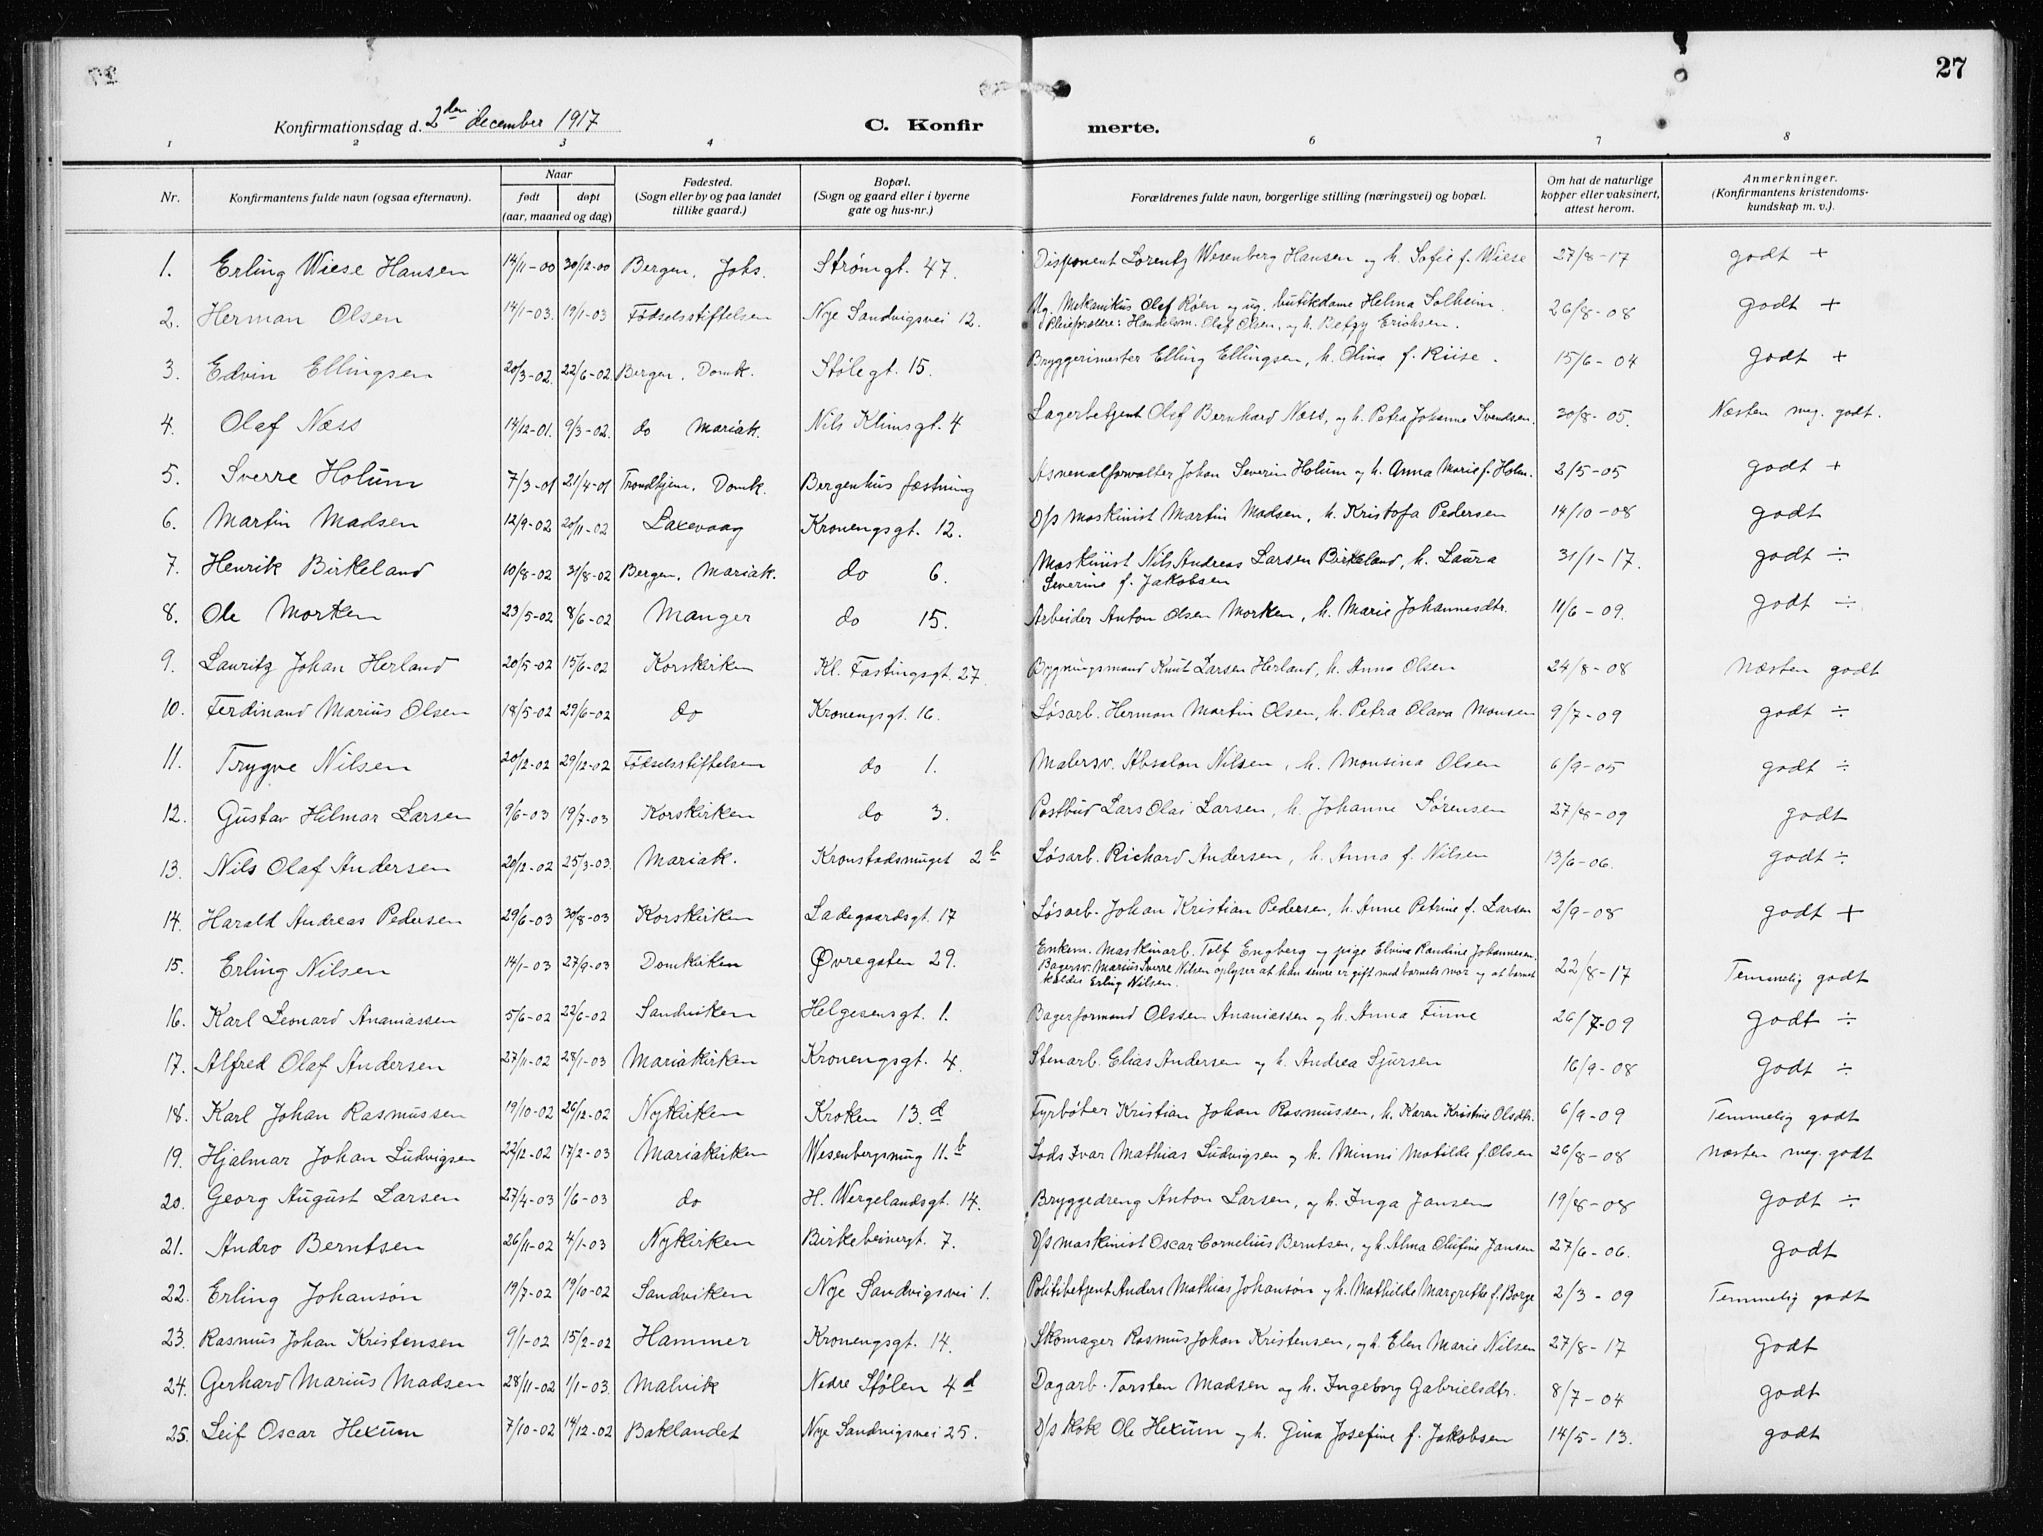 27
Konfirmationsdag d. 2den december 1917
C. Konfirmerte.
1 2 3 4 6 7 8
Nr. Konfirmantens fulde navn (ogsaa efternavn). Naar født døpt (aar, maaned og dag) Fødested. (Sogn eller by og paa landet tillike gaard.) Bopæl. (Sogn og gaard eller i byerne gate og hus-nr.) Forældrenes fulde navn, borgerlige stilling (næringsvei) og bopæl. Om hat de naturlige kopper eller vaksinert, attest herom. Anmerkninger. (Konfirmantens kristendomskundskap m. v.).
1. Erling Wiese Hansen 14/11-00 30/12-00 Bergen, Johs. Strømgt. 47. Disponent Lorentz Wesenberg Hansen og h. Sofie f. Wiese 27/8-17 godt +
2. Herman Olsen 14/1-03. 19/1-03 Fødselsstiftelsen Nye Sandvigsvei 12. Ug. Mekanikus Olaf Røen og ug. butikdame Helma Solheim.
Pleieforældre: Handelsm. Olaf Olsen, og h. Betzy Erichsen. 26/8-08 godt +
3. Edvin Ellingsen 20/3-02. 22/6-02 Bergen, Domk. Stølegt. 15. Bryggerimester Elling Ellingsen, h. Olina f. Riise. 15/6-04 godt +
4. Olaf Næss 14/12-01. 9/3-02. do Mariak. Nils Klimsgt. 4 Lagerbetjent Olaf Bernhard Næss, og h. Petra Johanne Svendsen. 30/8-05. Næsten meg. godt.
5. Sverre Holum 7/3-01 21/4-01 Trondhjem, Domk. Bergenhus fæstning Arsenalforvalter Johan Severin Holum og h. Anna Marie f. Holm. 2/5-05 godt +
6. Martin Madsen 12/9-02 20/11-02 Laxevaag Kronengsgt. 12. D/s maskinist Martin Madsen, h. Kristofa Pedersen 14/10-08 godt
7. Henrik Birkeland 10/8-02 31/8-02 Bergen, Mariak. do 6. Maskinist Nils Andreas Larsen Birkeland, h. Laura
Severine f. Jakobsen 31/1-17. godt ÷
8. Ole Morken 23/5-02 8/6-02 Manger do 15. Arbeider Anton Olsen Morken, h. Marie Johannesdtr. 11/6-09. godt ÷
9. Lauritz Johan Herland 20/5-02 15/6-02 Korskirken Kl. Fastingsgt. 27. Bygningsmand Knut Larsen Herland, h. Anna Olsen 24/8-08 næsten godt
10. Ferdinand Marius Olsen 18/5-02 29/6-02 do Kronengsgt. 16. Løsarb. Herman Martin Olsen, h. Petra Olava Monsen 9/7-09 godt ÷
11. Trygve Nilsen 20/12-02 29/12-02 Fødselsstiftelsen do 1. Malersv. Absalon Nilsen, h. Monsina Olsen 6/9-05 godt ÷
12. Gustav Hilmar Larsen 9/6-03 19/7-03 Korskirken do 3. Postbud Lars Olai Larsen, h. Johanne Sørensen 27/8-09 godt
13. Nils Olaf Andersen 20/12-02 25/3-03. Mariak. Kronstadsmuget 2b Løsarb. Richard Andersen, h. Anna f. Nilsen 13/6-06. godt ÷
14. Harald Andreas Pedersen 29/6-03 30/8-03 Korskirken Ladegaardsgt. 17 Løsarb. Johan Kristian Pedersen, h. Anne Petrine f. Larsen 2/9-08 godt +
15. Erling Nilsen 14/1-03 27/9-03 Domkirken Øvregaten 29. Enkem. Maskinarb. Tolf Engberg og pige Elvina Randine Johannesen.
Bagersv. Marius Sverre Nilsen oplyser at han senere er gift med barnets mor og at barnet
kaldes Erling Nilsen. 22/8-17 Temmelig godt
16. Karl Leonard Ananiassen 5/6-02 22/6-02 Sandviken Helgesensgt. 1. Bagerformand Olssen Ananiassen og h. Anna Finne 26/7-09 godt ÷
17. Alfred Olaf Andersen 27/11-02 28/1-03 Mariakirken Kronengsgt. 4. Stenarb. Elias Andersen og h. Andrea Sjursen 16/9-08 godt ÷
18. Karl Johan Rasmussen 19/10-02 26/12-02 Nykirken Kroken 13.d Fyrbøter Kristian Johan Rasmussen, h. Karen Kristine Olsdtr. 6/9-09 Temmelig godt
19. Hjalmar Johan Ludvigsen 22/12-02 17/2-03 Mariakirken Wesenbergsmug 11.b Lods Ivar Mathias Ludvigsen og h. Minni Matilde f. Olsen 26/8-08 næsten meg. godt
20. Georg August Larsen 27/4-03 1/6-03 do H. Wergelandsgt. 14. Bryggedreng Anton Larsen, og h. Inga Jansen 19/8-08 godt ÷
21. Andro Berntsen 26/11-02 4/1-03 Nykirken Birkebeinergt. 7. D/s maskinist Oscar Cornelius Berntsen, og h. Alma Olufine Jansen 27/6-06. godt
22. Erling Johansøn 19/7-02 19/10-02 Sandviken Nye Sandvigsvei 1. Politibetjent Anders Mathias Johansøn og h. Mathilde Margrethe f. Borge 2/3-09 Temmelig godt
23. Rasmus Johan Kristensen 9/1-02 15/2-02 Hammer Kronengsgt. 14. Skomager Rasmus Johan Kristensen, og h. Elen Marie Nilsen 27/8-17 Godt
24. Gerhard Marius Madsen 28/11-02 1/1-03. Malvik Nedre Stølen 4d Dagarb. Torsten Madsen og h. Ingeborg Gabrielsdtr. 8/7-04 godt
25. Leif Oscar Hexum 7/10-02 14/12-02 Baklandet Nye Sandvigsvei 25. D/s kok Ole Hexum og h. Gina Josefine f. Jakobsen 14/5-13. godt